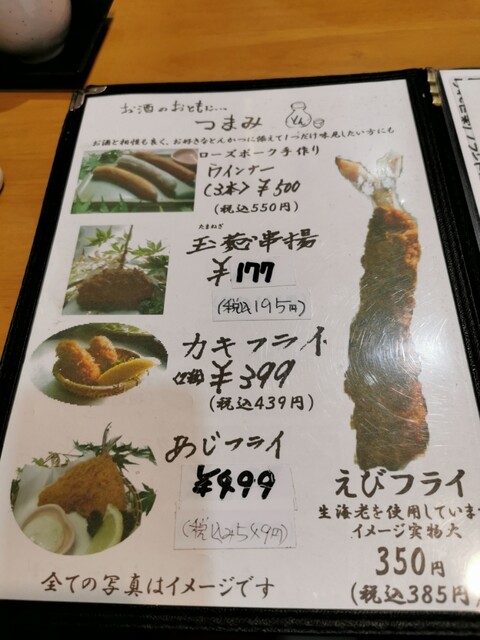 お酒のおともに…
つまみ
とん
お酒と相性も良く、お好きなとんかつに添えて1つだけ味見したい方にも
ローズポーク手作り
ウインナー
(3本) ¥500
(税込550円)
たまねぎ
玉葱串揚
¥177
(税込195円)
カキフライ
¥399
(税込439円)
あじフライ
¥499
(税込み549円)
えびフライ
生海老を使用しています
イメージ実物大
350円
(税込385円)
全ての写真はイメージです